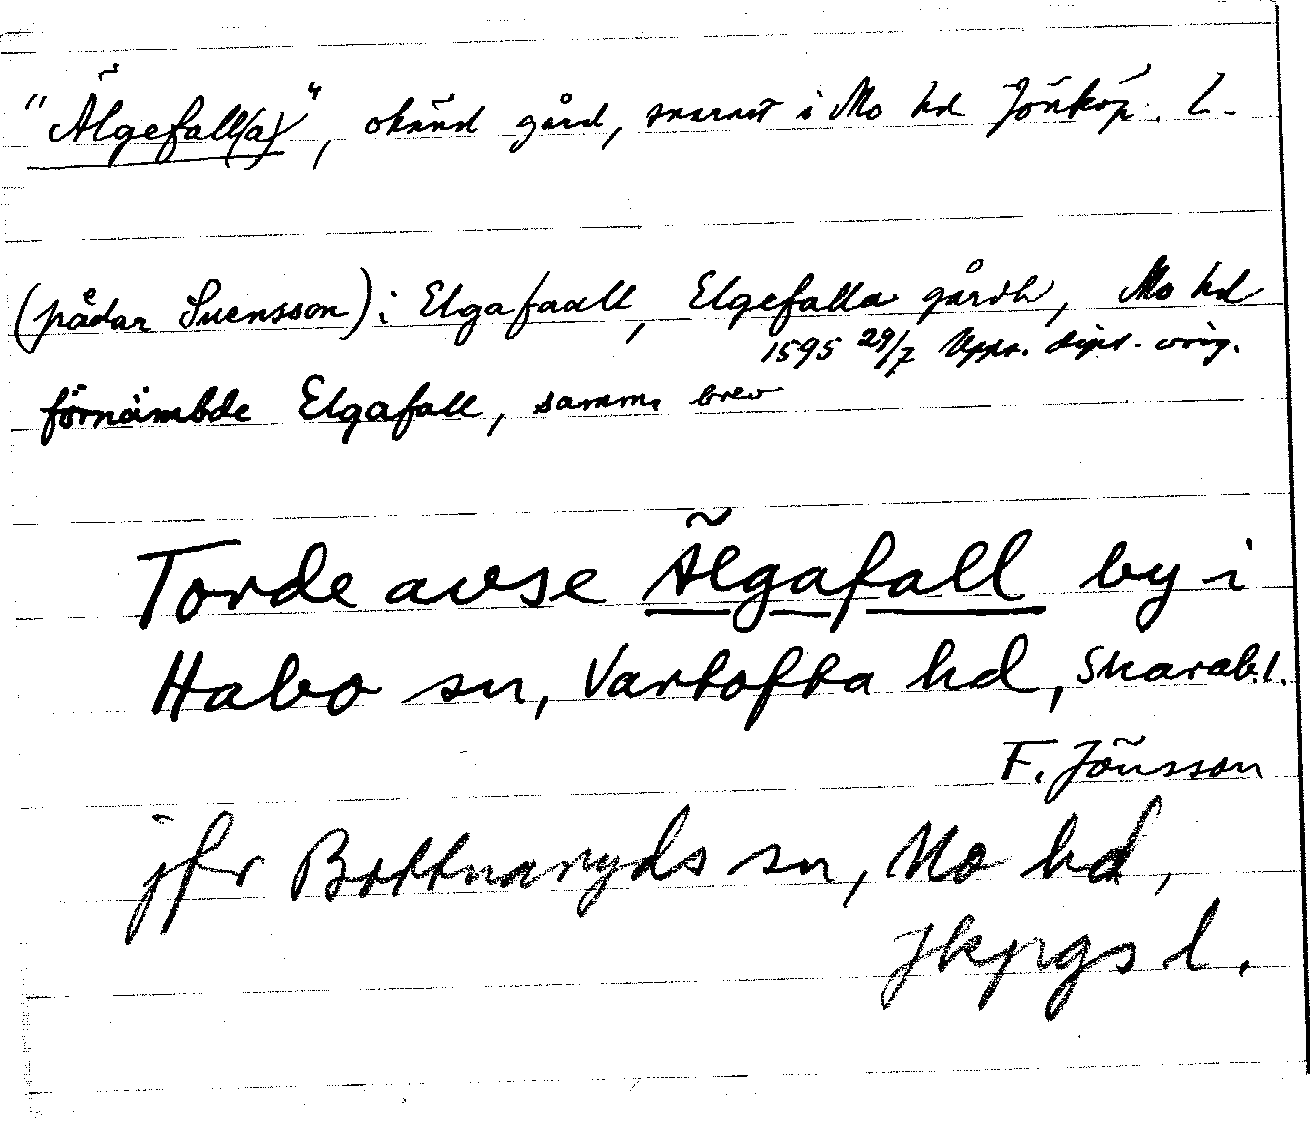 "Älgefall(a)", okänd gård, snarast i Mo hd Jönköp. l.
(pådar Suensson) i Elgafaall, Elgefalla gårdh, Mo hd
1595 29/7 Upps. dipl. orig.
förnämbde Elgafall, samm. brev
Torde avse Älgafall by i
Habo sn, Vartofta hd, Skarab.l.
F. Jönsson
jfr Bottnaryds sn, Mo hd,
Jkpgs l.